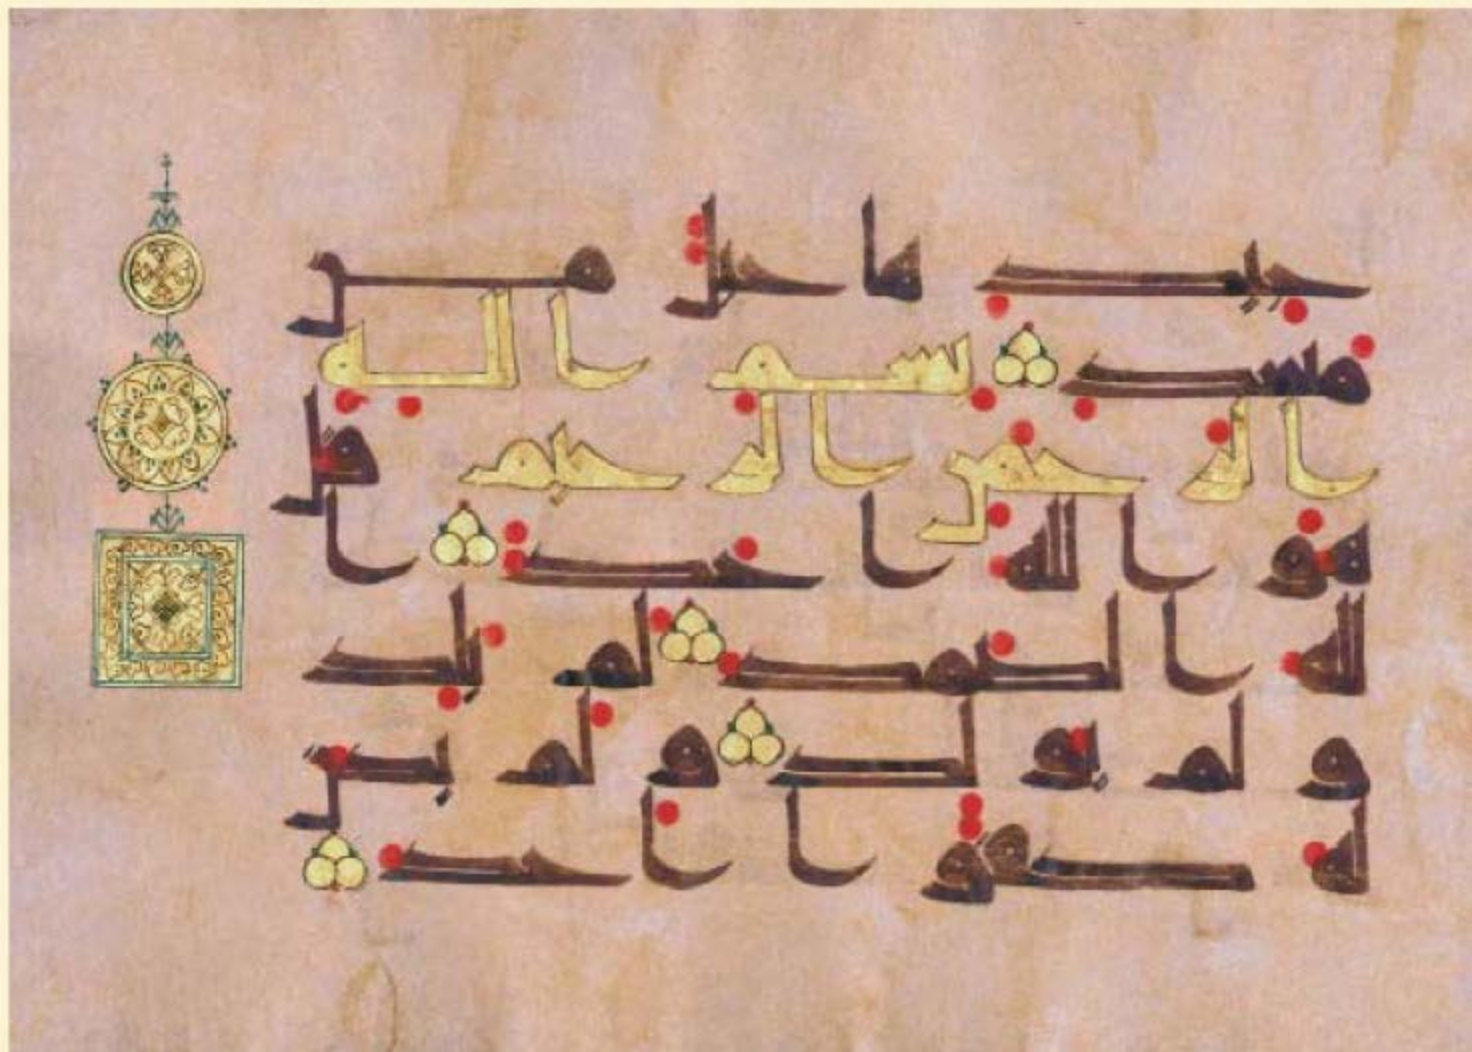 جيدها حبل من
مسد بسم الله
الرحمن الرحيم قل
هو الله احد ا
لله الصمد لم يلد
و لم يولد و لم يكن
له كفوا احد